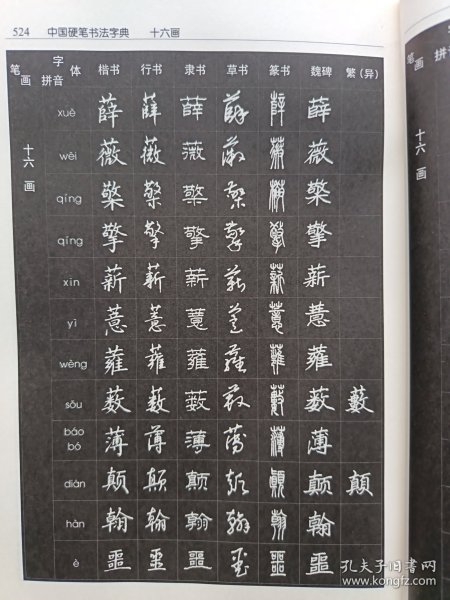 524 中国硬笔书法字典 十六画
笔画 字体 拼音 楷书 行书 隶书 草书 篆书 魏碑 繁（异）
十六画
xuē 薛 薛 薛 薛 薛 薛
wēi 薇 薇 薇 薇 薇 薇
qíng 檠 檠 檠 檠 檠 檠
qíng 擎 擎 擎 擎 擎 擎
xīn 薪 薪 薪 薪 薪 薪
yì 薏 薏 薏 薏 薏 薏
wèng 蕹 蕹 蕹 蕹 蕹 蕹
sǒu 薮 薮 薮 薮 薮 薮 藪
báo bó 薄 薄 薄 薄 薄 薄
diān 颠 颠 颠 颠 颠 颠 顛
hàn 翰 翰 翰 翰 翰 翰
è 噩 噩 噩 噩 噩 噩
笔画
十六画
孔夫子旧书网
www.kongfz.com